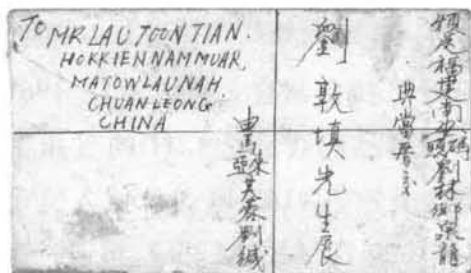 TO MR LAU TOON TIAN.
HOKKIEN NAMMUAR,
MATOWLAUNAH,
CHUANLEONG
CHINA
福建南安碼頭劉林鄉泉龍
典當晉交
劉敦填先生展
馬來亞芙蓉劉緘